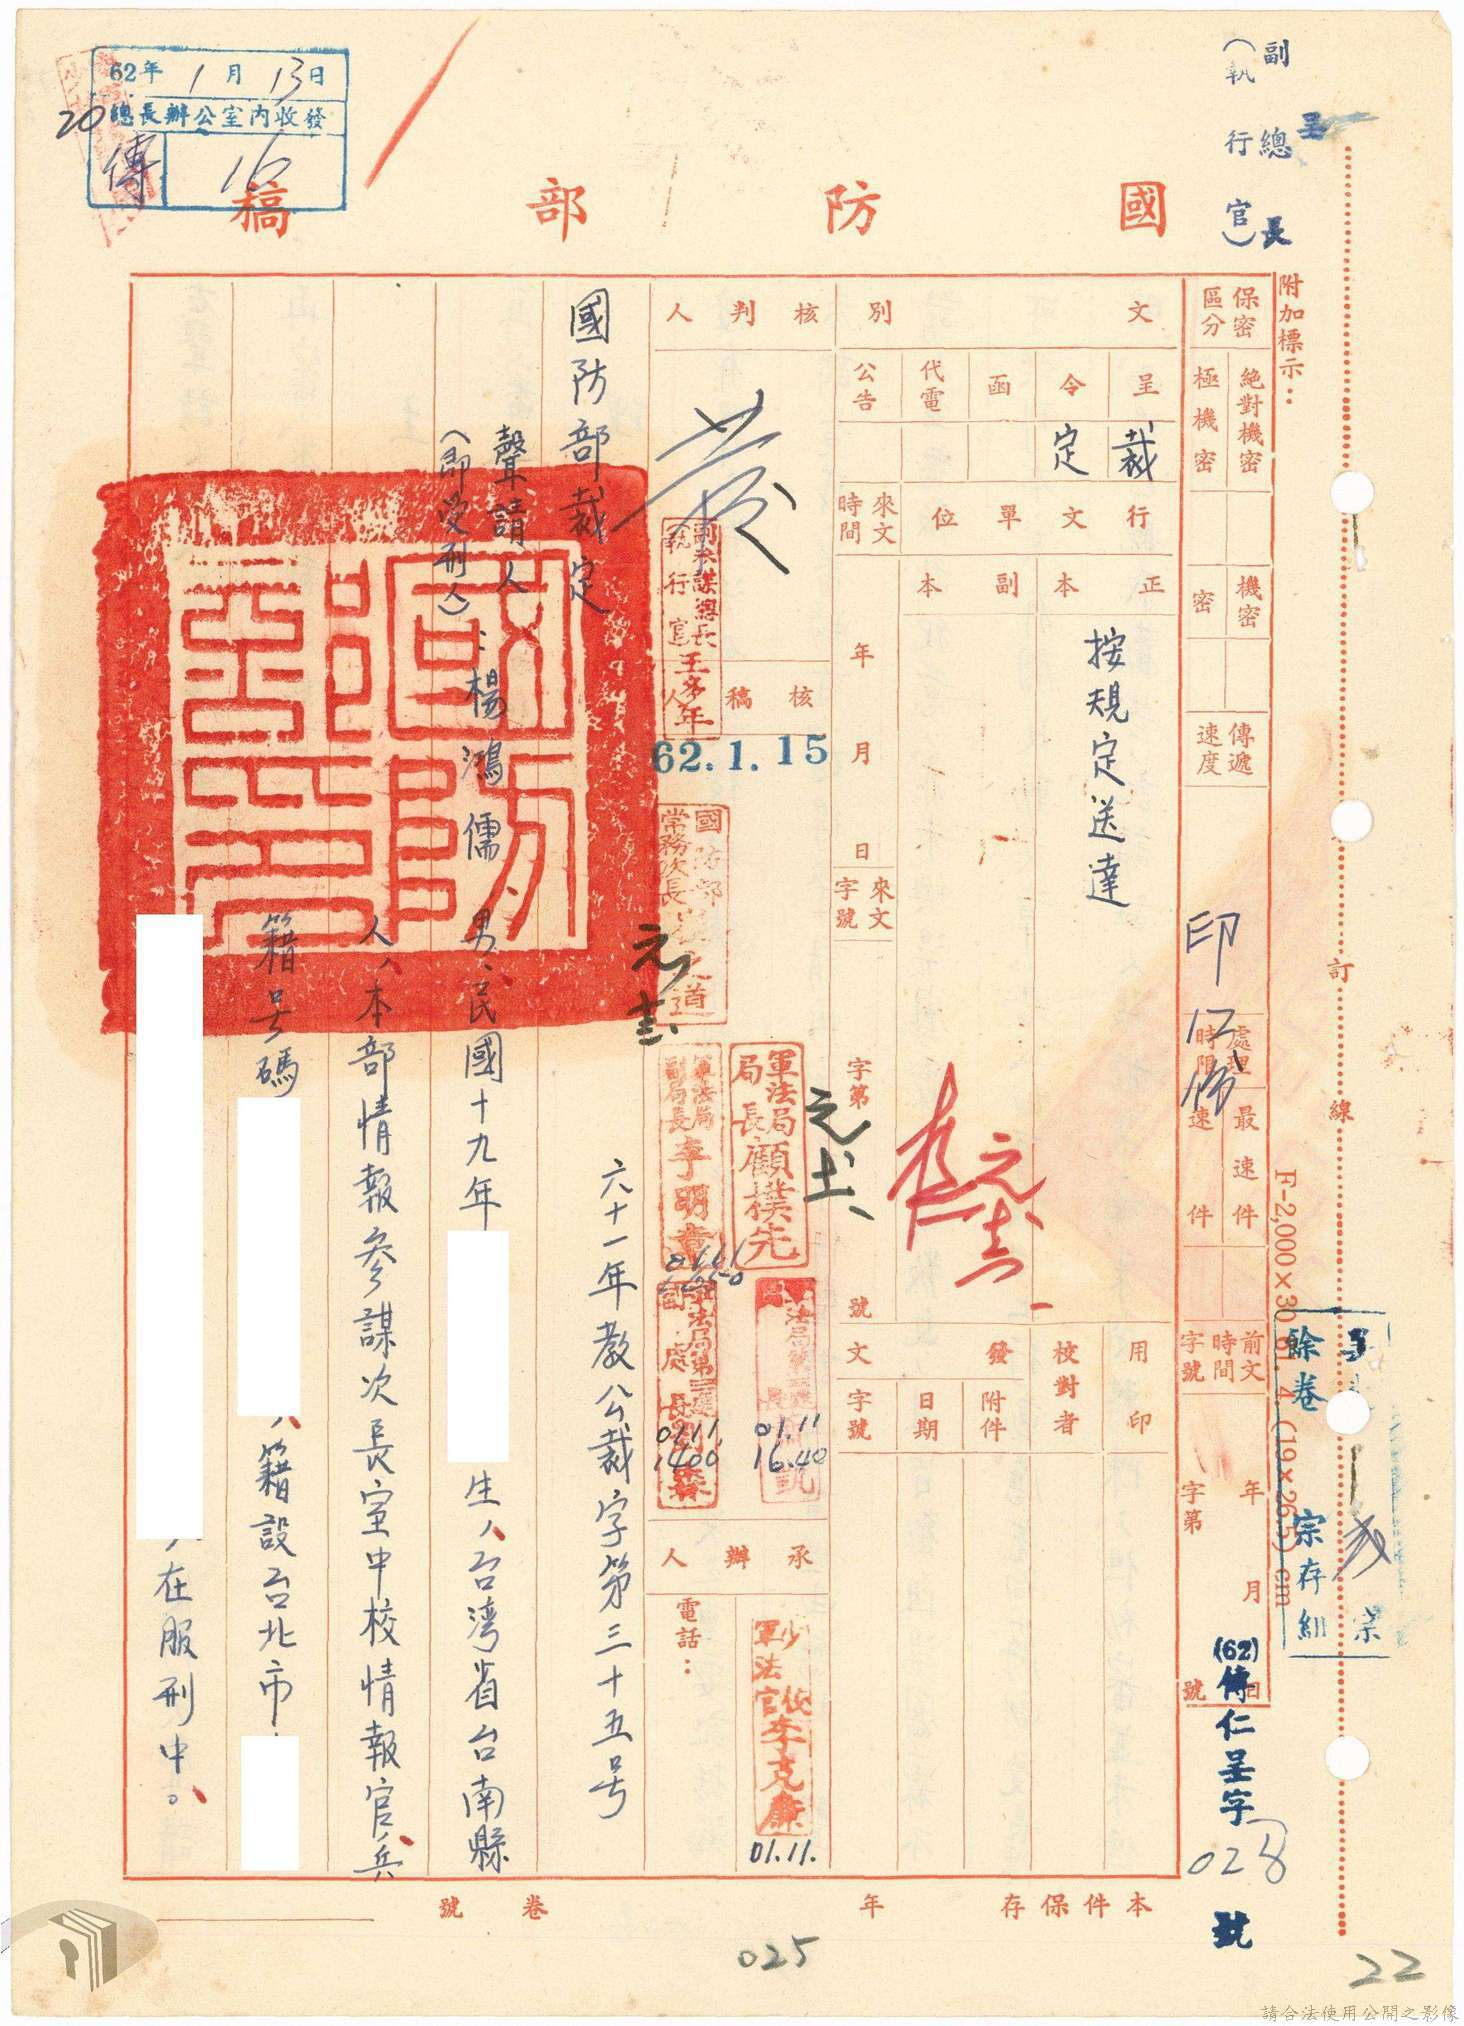 62年1月13日
總長辦公室內收發
20
傳
16
呈
副總長
(執行官)
國防部稿
附加標示：
保密區分
絕對機密
極機密
機密
密
傳遞速度
處理時限
最速件
速件
印12份
前文時間字號
年月日
字第
號
(62)傳仁呈字028號
文別
呈
令
函
代電
公告
裁定
行文單位
來文時間
正本
副本
年月日
按規定送達
來文字號
字第
號
用印
校對者
發文
附件
日期
字號
核判人
副參謀總長
執行官
王多年
核稿人
62.1.15
國防部
常務次長
道
軍法局
局長
顧樸先
軍法局
副局長
李明章
01.11
16.40
01.11
1400
承辦人
電話：
軍法官
李克廉
01.11.
國防部裁定
六十一年教公裁字第三十五号
聲請人
(即受刑人)
：楊鴻儒
男、民國十九年
生、台灣省台南縣
人、本部情報參謀次長室中校情報官兵
籍号碼
、籍設台北市
、在服刑中。
本件保存
年
卷
號
訂
線
F-2,000×30 61. 4. (19×26.5)cm
餘卷
宗存組
025
22
請合法使用公開之影像